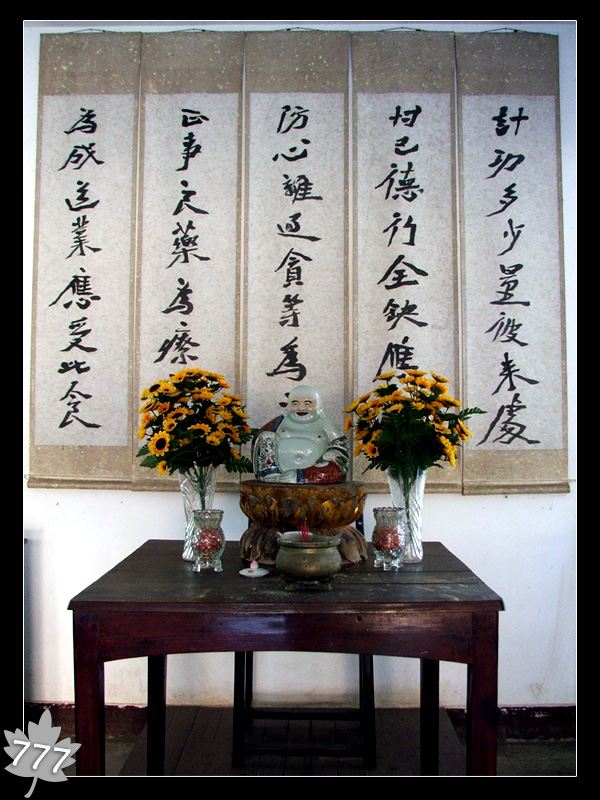 計功多少量彼来處
忖己德行全缺應
防心離過貪等為
正事良藥為療
為成道業應受此食
777